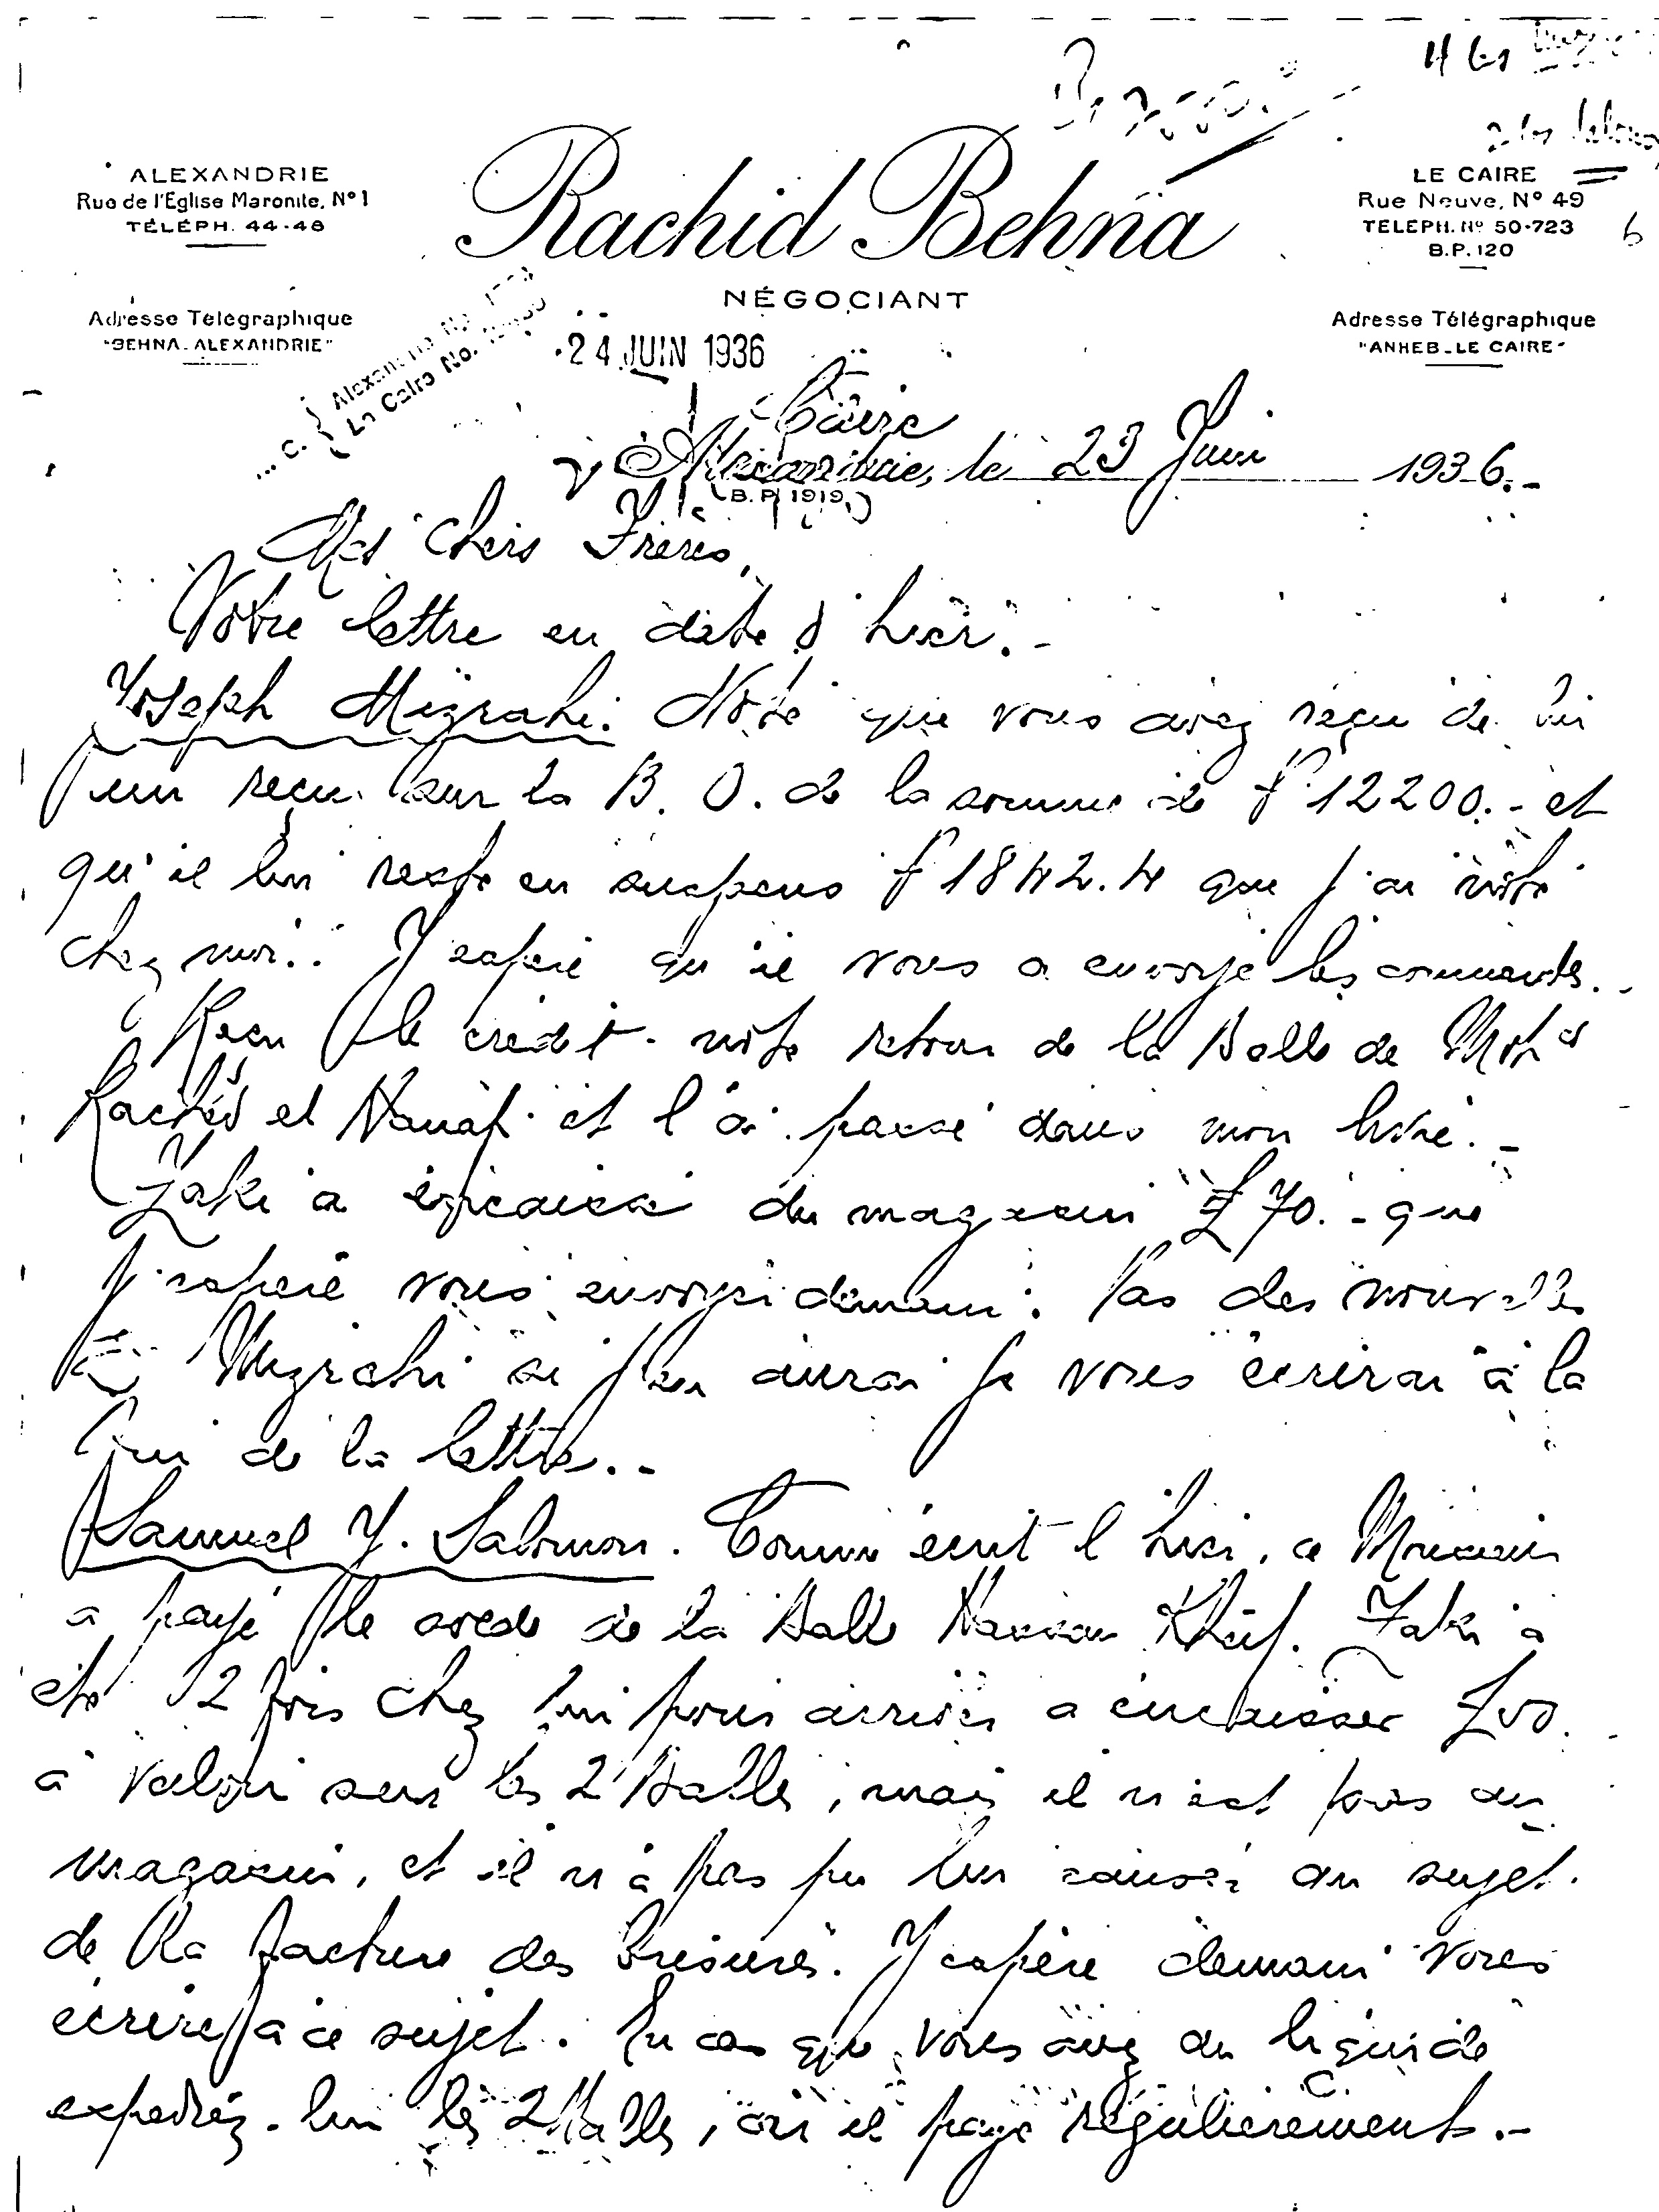 ALEXANDRIE
Rue de l'Eglise Maronite, N° 1
TÉLÉPH. 44-48
Adresse Télégraphique
"BEHNA-ALEXANDRIE"
Rachid Behna
NÉGOCIANT
LE CAIRE
Rue Neuve, N° 49
TELEPH. N° 50-723
B.P. 120
Adresse Télégraphique
"ANHEB-LE CAIRE"
6
R. C. { Alexandrie No.
Le Caire No.
24 JUIN 1936
Caire
Alexandrie, le 23 Juin 1936.-
(B.P. 1919)
Mes Chers Frères,
Votre lettre en date d'hier.-
Joseph Mizrahi. Noté que vous avez reçu de lui
un reçu sur la B. O. de la somme de f 12200.- et
qu'il lui reste en suspens f 1842.4 que j'ai noté
chez moi.. J'espère qu'il vous a envoyé les commandes..
Reçu le crédit-note retour de la Balle de Moh ed
Rached et Hanafi et l'ai passé dans mon livre.-
Zaki a encaissé du magasin £ 70.- que
j'espère vous envoyer demain. Pas des nouvelles
de Mizrahi si j'en aurai je vous écrirai à la
fin de la lettre..-
Samuel J. Salomon. Comme écrit hier, ce Monsieur
a payé le solde de la Balle Hassan Zaki a
été 2 fois chez lui pour arriver a encaisser
à valoir sur les 2 Balles, mais il n'est pas au
magasin, et il n'a pas pu lui causer au sujet
de la facture des J'espère demain vous
écrire à ce sujet. En cas que vous avez du liquide
expédiez-lui les 2 Balles, car il paye régulièrement.-